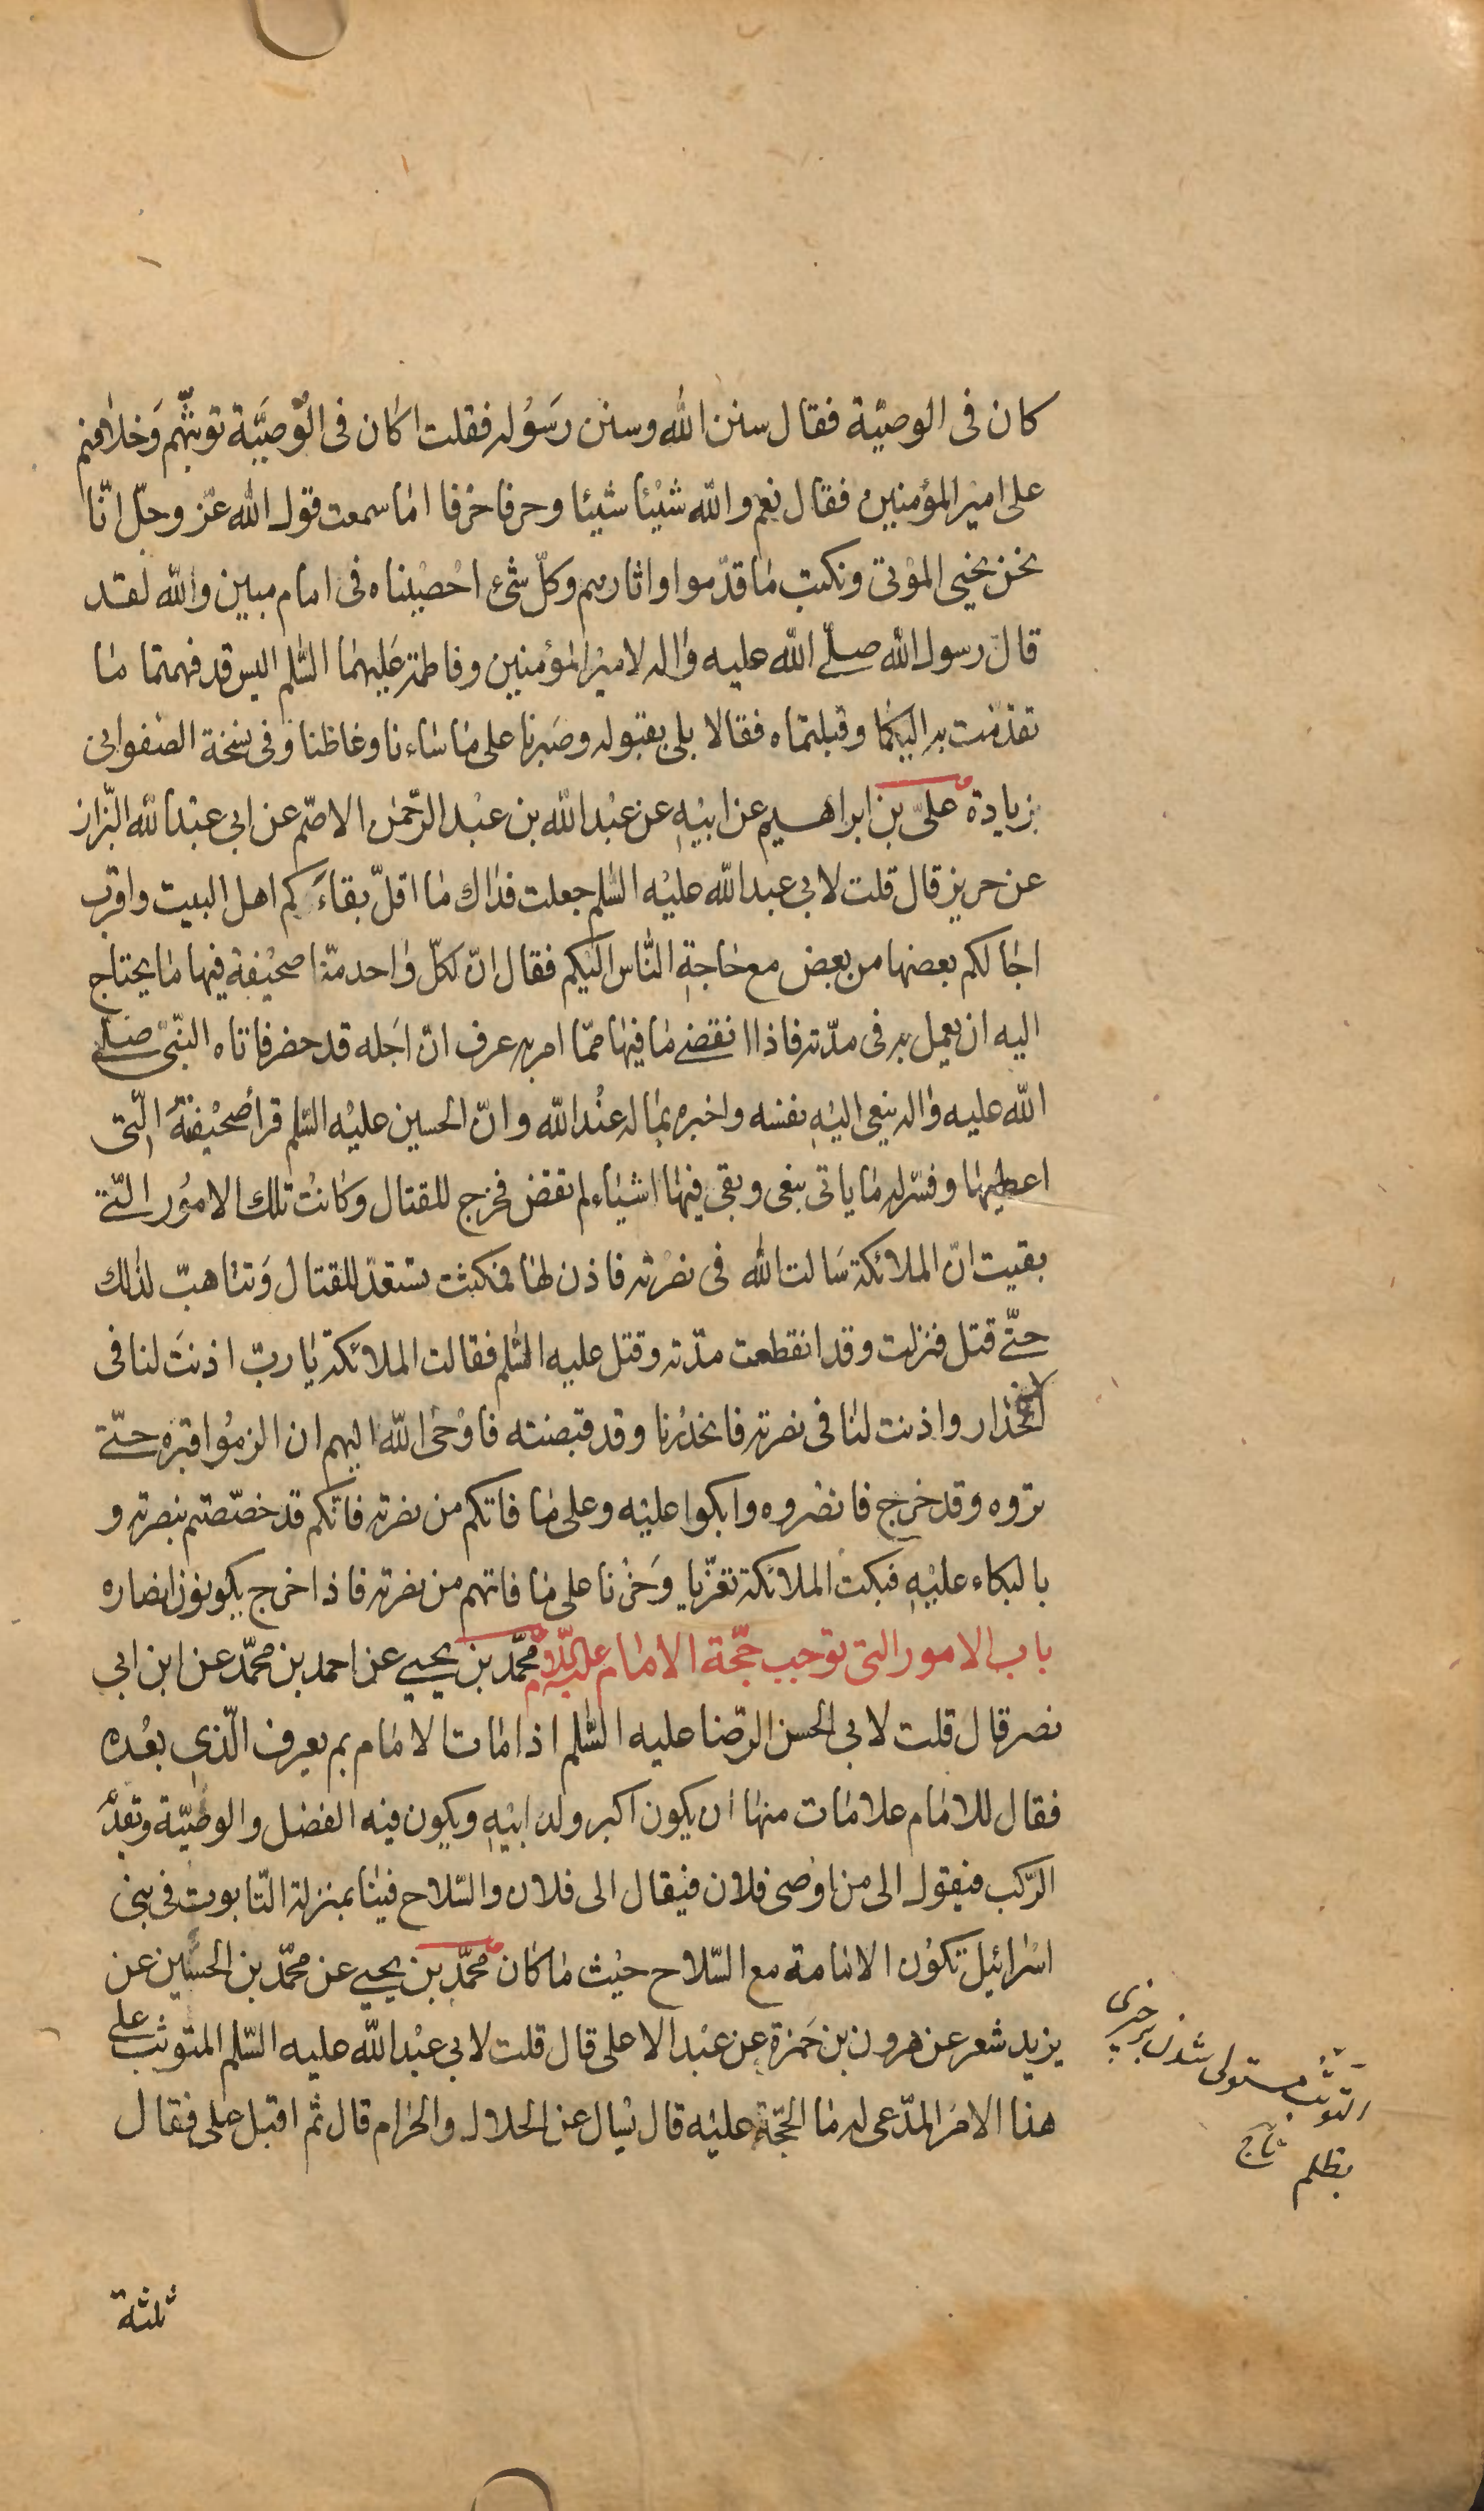 كان فى الوصيّة فقال سنن الله وسنن رسوله فقلت اكان فى الوصيّة توثّبهم وخلافهم
على امير المؤمنين فقال نعم والله شيئا شيئا وحرفا حرفا اما سمعت قول الله عزّ وجلّ انّا
نحن نحيى الموتى ونكتب ما قدّموا واثارهم وكلّ شئ احصيناه فى امام مبين والله لقد
قال رسول الله صلّى الله عليه واله لامير المؤمنين وفاطمة عليهما السّلم اليس قد فهمتما ما
تقدّمت به اليكما وقبلتماه فقالا بلى بقبوله وصبرنا على ما ساءنا وغاظنا وفى نسخة الصفوانى
زيادة علىّ بن ابراهيم عن ابيه عن عبد الله بن عبد الرّحمن الاصمّ عن ابى عبد الله البزّاز
عن حريز قال قلت لابى عبد الله عليه السّلم جعلت فداك ما اقلّ بقاءكم اهل البيت واقرب
اجالكم بعضها من بعض مع حاجة النّاس اليكم فقال انّ لكلّ واحد منّا صحيفة فيها ما يحتاج
اليه ان يعمل به فى مدّته فاذا انقضى ما فيها ممّا امر به عرف انّ اجله قد حضر فاتاه النّبىّ صلّى
الله عليه واله ينعى اليه نفسه واخبره بما له عند الله وانّ الحسين عليه السّلم قرأ صحيفته الّتى
اعطيها وفسّر له ما ياتى بنعى وبقى فيها اشياء لم تقض فخرج للقتال وكانت تلك الامور الّتى
بقيت انّ الملائكة سالت الله فى نصرته فاذن لها فمكثت تستعدّ للقتال وتتاهبّ لذلك
حتّى قتل فنزلت وقد انقطعت مدّته وقتل عليه السّلم فقالت الملائكة يا ربّ اذنت لنا فى
الانحدار واذنت لنا فى نصرته فانحدرنا وقد قبضته فاوحى الله اليهم ان الزموا قبره حتّى
تروه وقد خرج فانصروه وابكوا عليه وعلى ما فاتكم من نصرته فانّكم قد خصّصتم بنصرته و
بالبكاء عليه فبكت الملائكة تعزّيا وحزنا على ما فاتهم من نصرته فاذا خرج يكونون انصاره
باب الامور التى توجب حجّة الامام عليه السّلام محمّد بن يحيى عن احمد بن محمّد عن ابن ابى
نصر قال قلت لابى الحسن الرّضا عليه السّلم اذا مات الامام بم يعرف الّذى بعده
فقال للامام علامات منها ان يكون اكبر ولد ابيه ويكون فيه الفضل والوصيّة وتقدم
الرّكب فيقول الى من اوصى فلان فيقال الى فلان والسّلاح فينا بمنزلة التّابوت فى بنى
اسرائيل تكون الامامة مع السّلاح حيث ما كان محمّد بن يحيى عن محمّد بن الحسين عن
يزيد شعر عن هرون بن حمزة عن عبد الاعلى قال قلت لابى عبد الله عليه السّلم المتوثّب على
هذا الامر المدّعى له ما الحجّة عليه قال يسال عن الحلال والحرام قال ثم اقبل على فقال
التوثب مستولى شدن بر چيزى
بظلم تاج
ثلثة